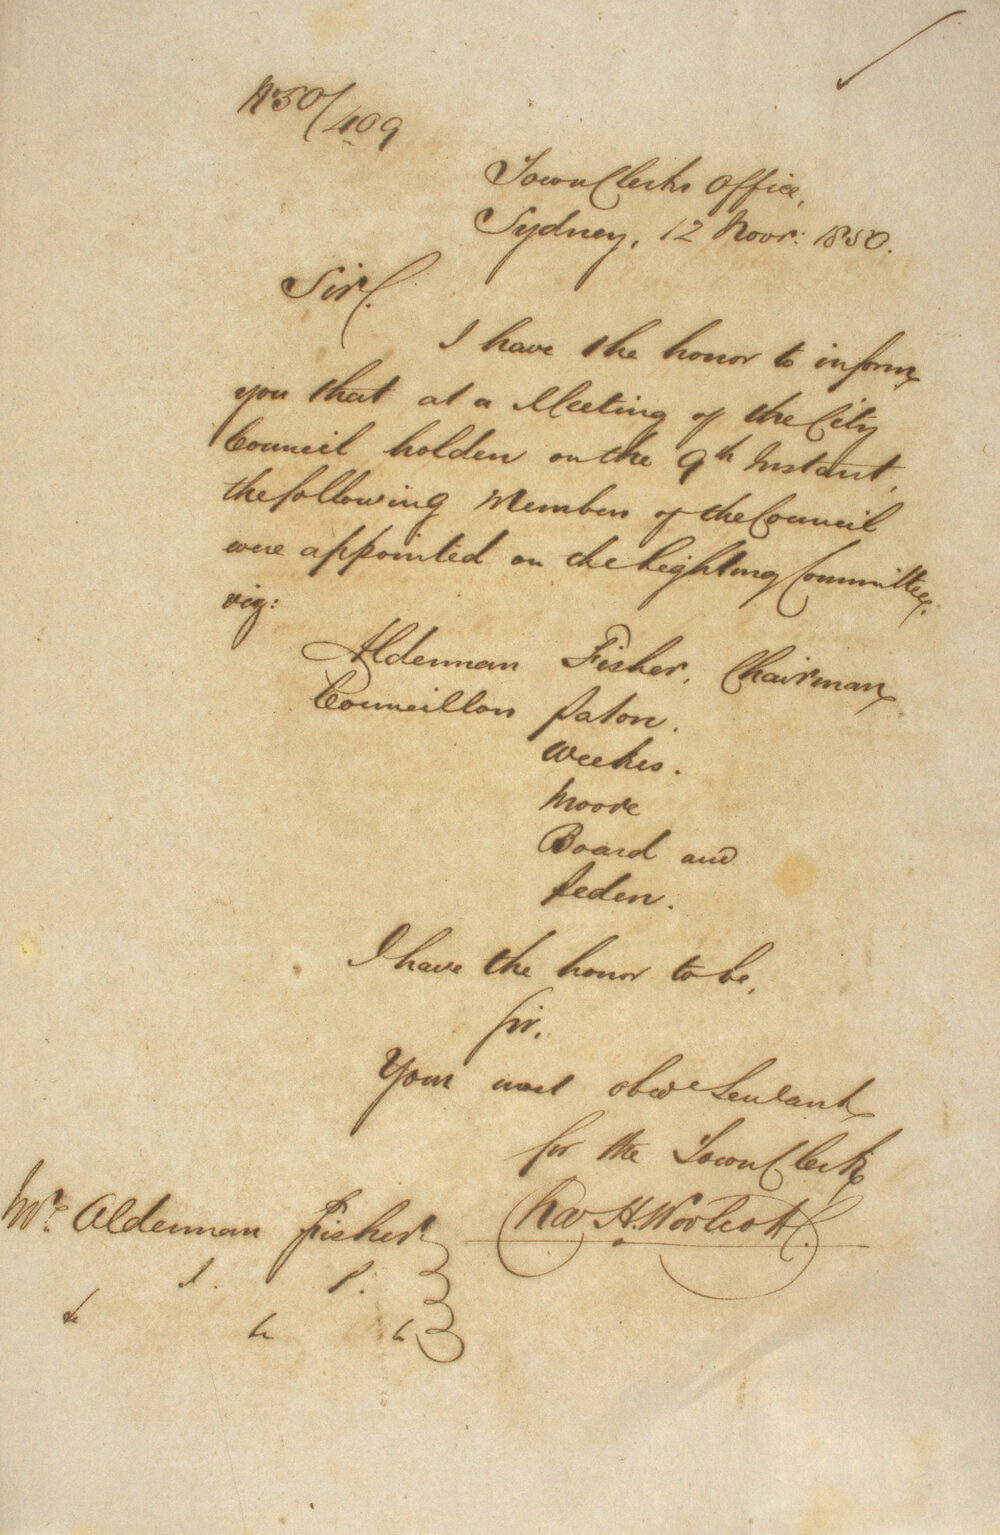 No 50/409
Town Clerks Office,
Sydney, 12 Novr: 1850.
Sir,
I have the honor to inform
you that at a Meeting of the City
Council holden on the 9th Instant,
the following Members of the Council
were appointed on the Lighting Committee,
viz:
Alderman Fisher, Chairman
Councillors Paton.
Weekes.
Moore
Board and
Peden.
I have the honor to be,
Sir,
Your most obdt Servant
for the Town Clerk
Chas H. Woolcott
Mr. Alderman Fisher
J. P.
&c &c &c